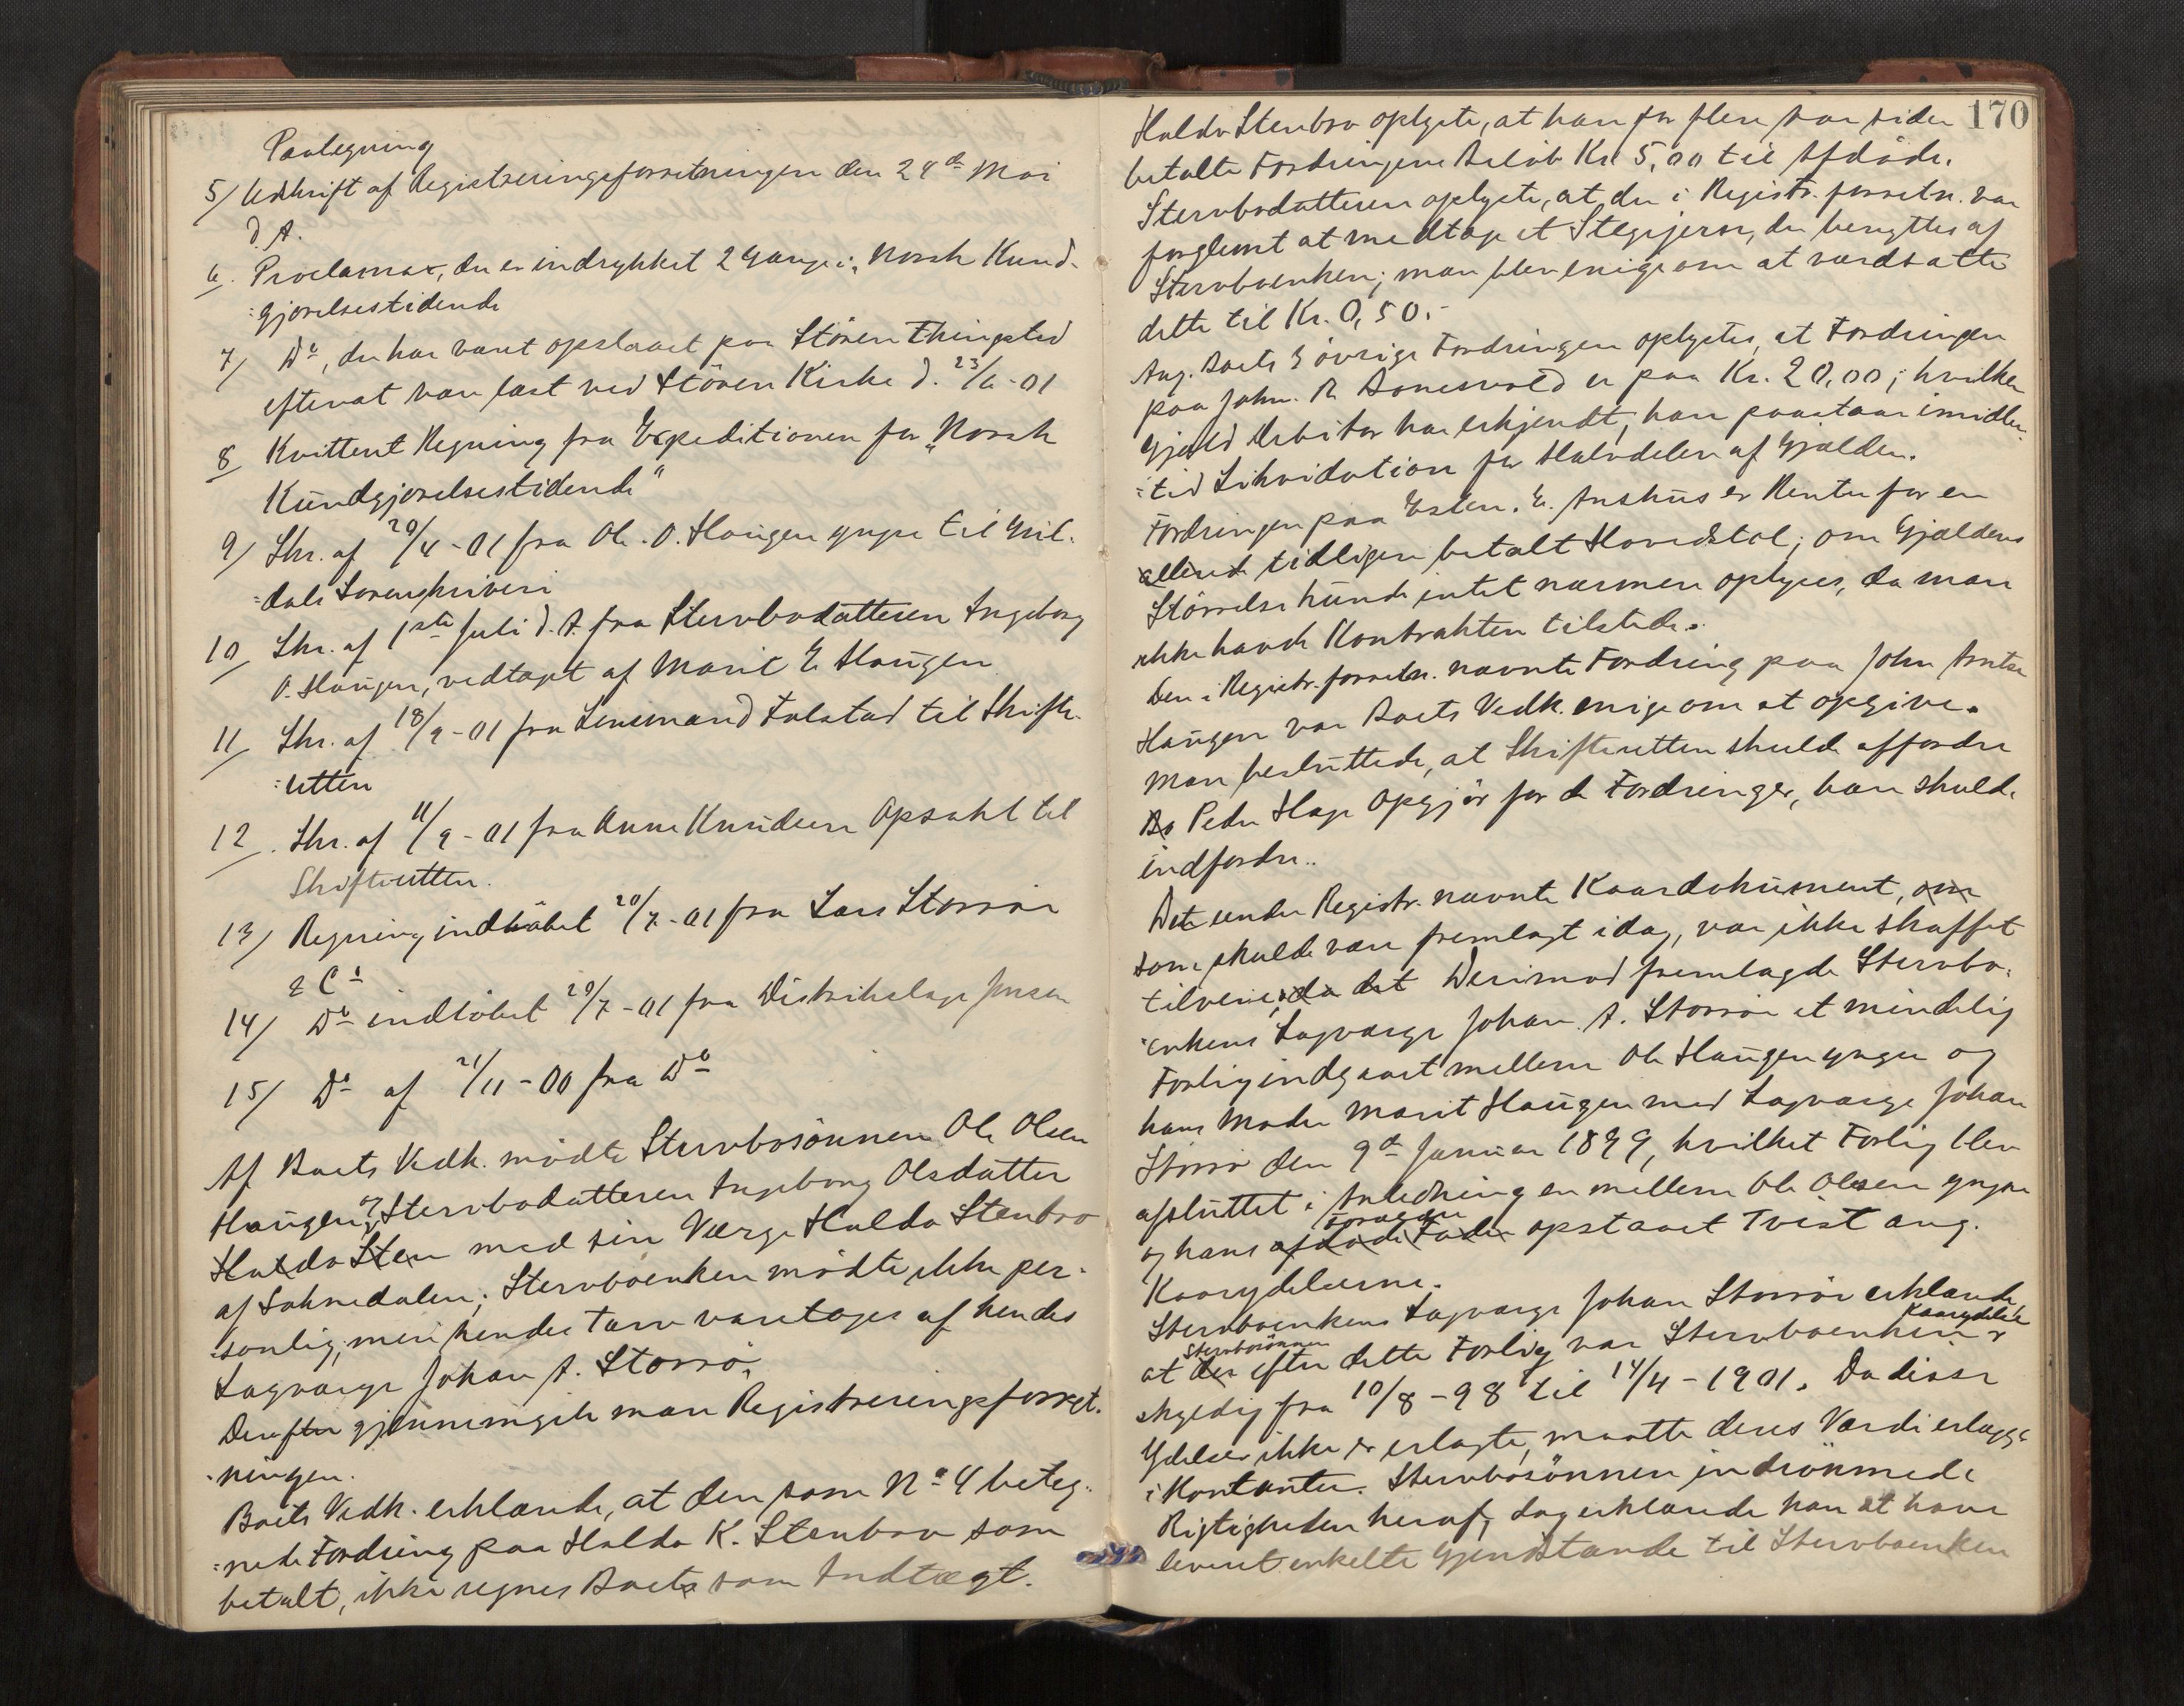 Paategning
5/ Udskrift af Registreringsforretningen den 24de Mai
d. A.
6. Proclamaet, der er indrykket 2 Gange i „Norsk Kund-
:gjørelsestidende
7/ Do, der har været opslaaet paa Støren Thingsted
efterat være læst ved Støren Kirke d. 23/6-01
8 Kvitteret Regning fra Expeditionen for „Norsk
Kundgjørelsestidende"
9/ Skr. af 20/4-01 fra Ole O. Haugen yngre til Gul-
:dals Sorenskriveri
10/ Skr. af 1ste Juli d. A. fra Stervbodatteren Ingeborg
O. Haugen, vedtaget af Marit E. Haugen
11/ Skr. af 18/9-01 fra Lensmand Folstad til Skifte-
:retten
12/. Skr. af 11/9-01 fra Anne Knudsen Opsahl til
Skifteretten.
13/ Regning indløbet 20/7-01 fra Lars Storrø
& Co
14/ Do indløbet 20/7-01 fra Distriktslæge Jensen
15/ Do af 21/11-00 fra Do
Af Boets Vedk. mødte Stervbosønnen Ole Olsen
Haugen, og Stervbodatteren Ingeborg Olsdatter
Haldo Sten med sin Verge Haldo Stenbro
af Soknedalen; Stervboenken mødte ikke per-
:sonlig, men hendes Tarv varetages af hendes
Lagværge Johan A. Storrø.
Derefter gjennemgik man Registreringsforret-
:ningen.
Boets Vedk. erklærede, at den som No 4 beteg-
:nede Fordring paa Haldo K. Stenbro som
betalt, ikke regnes Boets som Indtægt.
170
Haldo Stenbro oplyste, at han for flere Aar siden
betalte Fordringens Beløb Kr. 5,00 til Afdøde.
Stervbodatteren oplyste, at der i Registr. forretn. var
forglemt at medtage et Stegejern, der benyttes af
Stervboenken; man blev enige om at værdsætte
dette til Kr. 0,50.-
Ang. Boets øvrige Fordringer oplystes, at Fordringen
paa John. R. Bonesvold er paa Kr. 20,00; hvilken
Gjæld Debitor har erkjendt, han paastaar imidler-
:tid Likvidation for Halvdelen af Gjælden.
Fordringen paa Esten. E. Aashus er Renter for en
allerede tidligere betalt Hovedstol; om Gjældens
Størrelse kunde intet nærmere oplyses, da man
ikke havde Kontrakten tilstede.
Den i Registr. forretn. nævnte Fordring paa John Arntsen
Haugen var Boets Vedk. enige om at opgive.
Man besluttede, at Skifteretten skulde affordre
Bo Peder Hage Opgjør for de Fordringer, han skulde
indfordre.
Det under Registr. nævnte Kaardokument, om
som skulde være fremlagt idag, var ikke skaffet
tilveie, da det Derimod fremlagde Stervbo-
:enkens Lagværge Johan A. Storrø et mindelig
Forlig indgaaet mellem Ole Haugen yngre og
hans Moder Marit Haugen med Lagværge Johan
Storrø den 9de Januar 1899, hvilket Forlig blev
afsluttet i Anledning en mellem Ole Olsen yngre
og hans afdøde Fader Forældre opstaaet Tvist ang.
Kaarydelserne.
Stervboenkens Lagværge Johan Storrø erklærede
at der Stervbosønnen efter dette Forlig var Stervboenken Kaarydelser
skyldig fra 10/8-98 til 14/4-1901. Da disse
Ydelser ikke er erlagte, maatte deres Værdi erlægges
i Kontanter. Stervbosønnen indrømmede
Rigtigheden heraf, dog erklærede han at have
leveret enkelte Gjenstande til Stervboenken